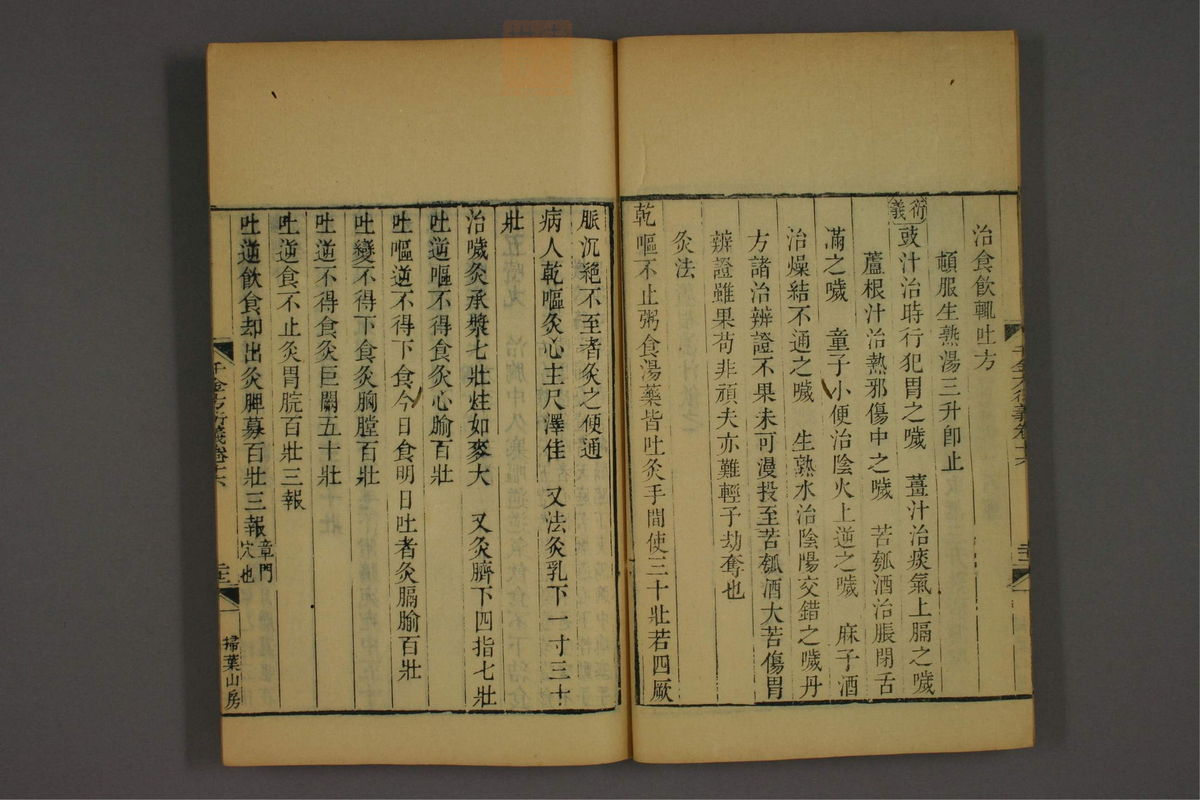 治食飲輒吐方
頓服生熟湯三升卽止
衍義
豉汁治時行犯胃之噦　薑汁治痰氣上膈之噦
蘆根汁治熱邪傷中之噦　苦瓠酒治脹閉舌
滿之噦　童子小便治陰火上逆之噦　麻子酒
治燥結不通之噦　生熟水治陰陽交錯之噦丹
方諸治辨證不果未可漫投至苦瓠酒大苦傷胃
辨證雖果苟非頑夫亦難輕子劫奪也
灸法
乾嘔不止粥食湯藥皆吐灸手間使三十壯若四厥
脈沉絕不至者灸之便通
病人乾嘔灸心主尺澤佳　又法灸乳下一寸三十
壯
治噦灸承漿七壯炷如麥大　又灸臍下四指七壯
吐逆嘔不得食灸心腧百壯
吐嘔逆不得下食今日食明日吐者灸膈腧百壯
吐變不得下食灸胸膛百壯
吐逆不得食灸巨闕五十壯
吐逆食不止灸胃脘百壯三報
吐逆飲食却出灸脾募百壯三報章門穴也
千金方衍義卷十六
掃葉山房